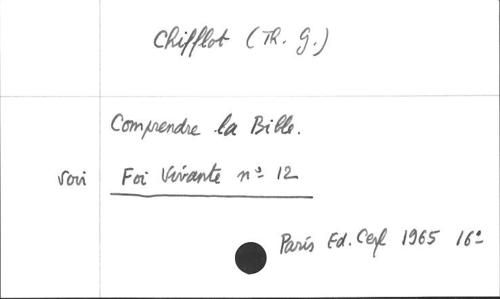 Chifflot (Th. G.)
Comprendre la Bible.
voir Foi Vivante nº 12
Paris Ed. Cerf 1965 16º